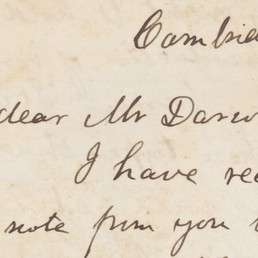 Cambrid
dear Mr Darw
I have rec
note from you